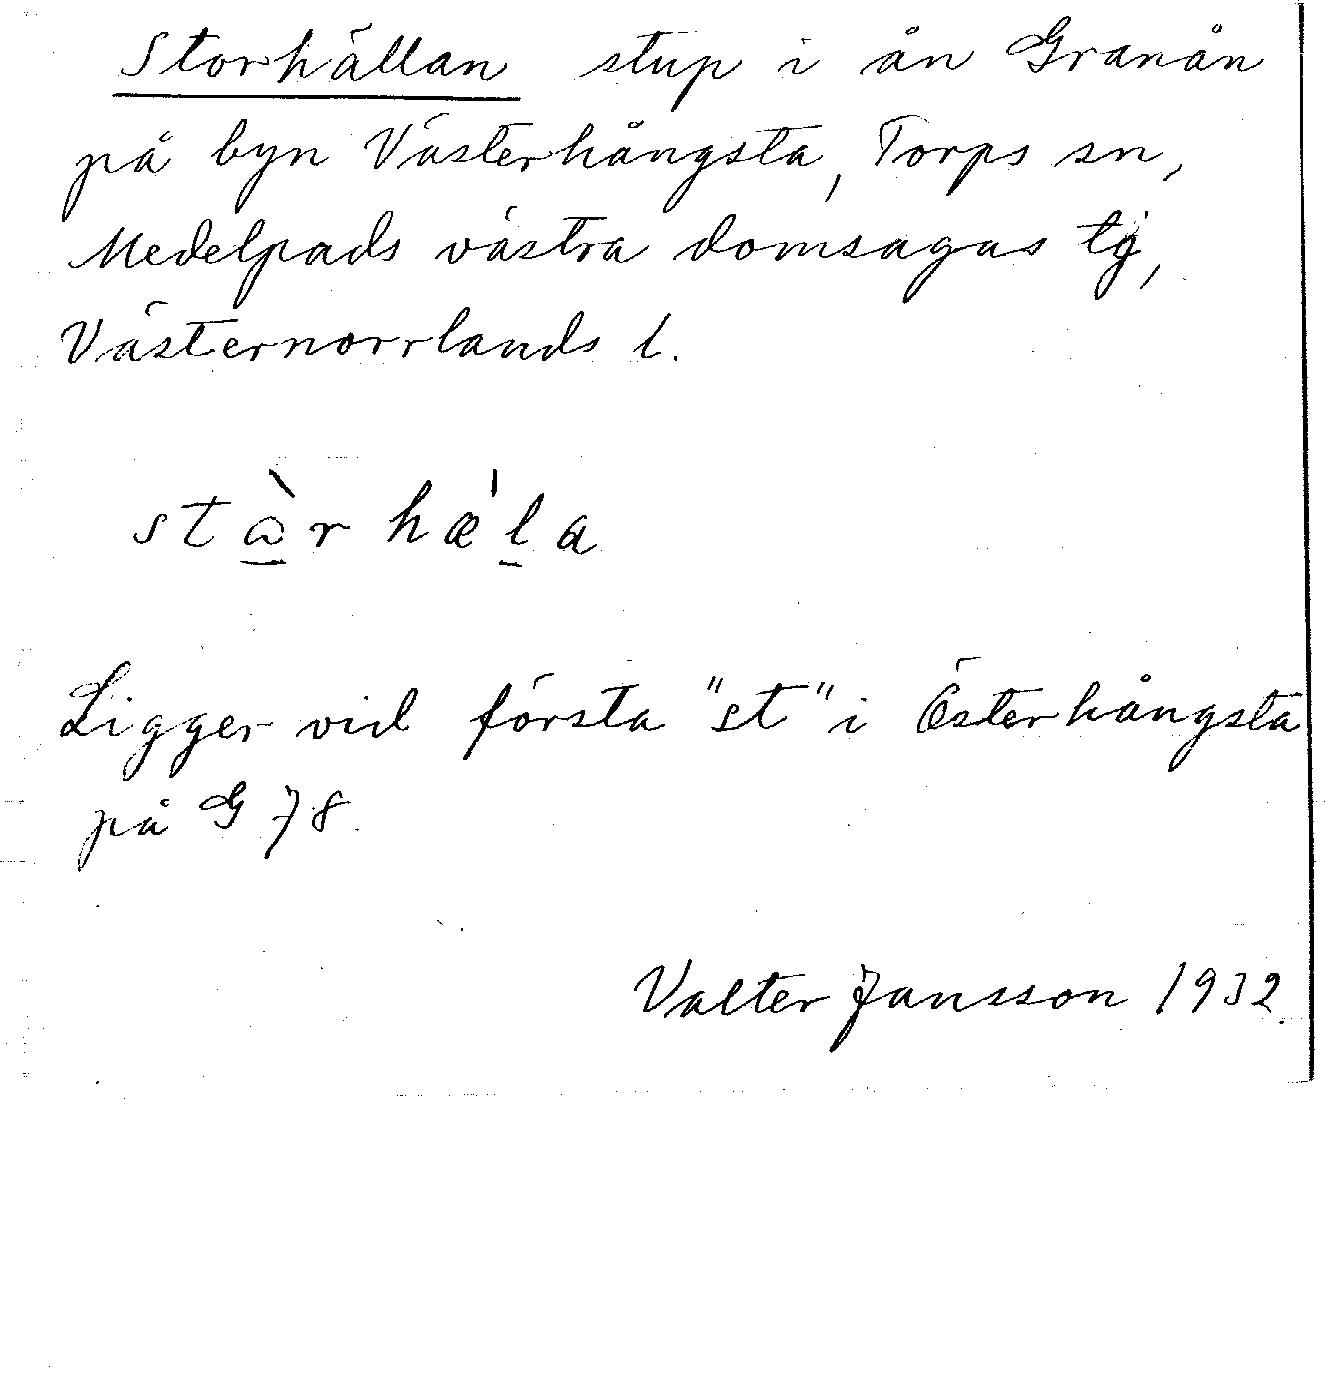 Storhällan stup i ån Granån
på byn Västerhångsta, Torps sn,
Medelpads västra domsagas tg,
Västernorrlands l.
stɷ̠̀rhæ̍l̠a
Ligger vid första "st" i Österhångsta
på G 78.
Valter Jansson 1932.